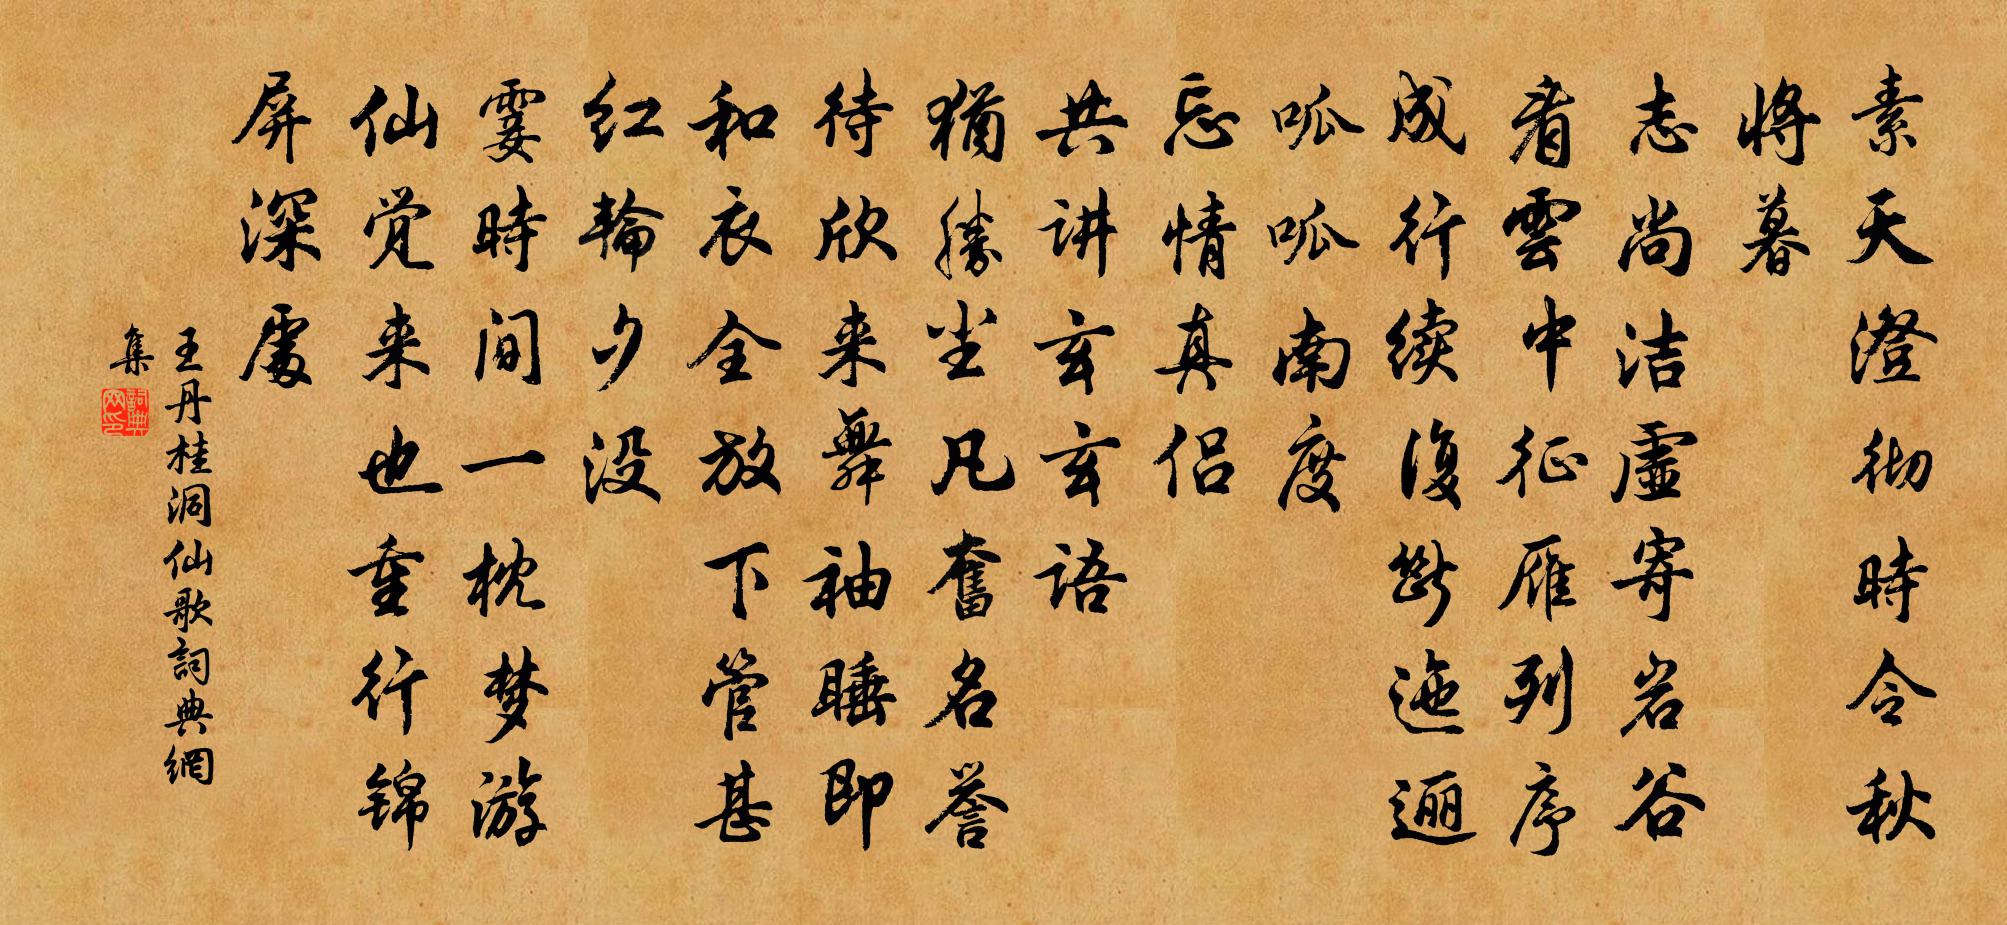 素天澄彻時令秋
將暮
志尚洁虛寄岩谷
看雲中征雁列序
成行续復斷迤逦
呱呱南度
忘情真侣
共讲玄玄语
猶勝尘凡奮名誉
待欣来舞袖睡即
和衣全放下管甚
红輪夕没
霎時间一枕梦游
仙觉来也重行锦
屏深處
王丹桂洞仙歌詞典網
集
詞典網印